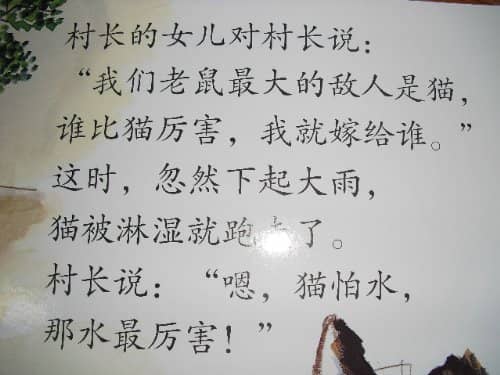 村长的女儿对村长说：
“我们老鼠最大的敌人是猫，
谁比猫厉害，我就嫁给谁。”
这时，忽然下起大雨，
猫被淋湿就跑走了。
村长说：“嗯，猫怕水，
那水最厉害！”